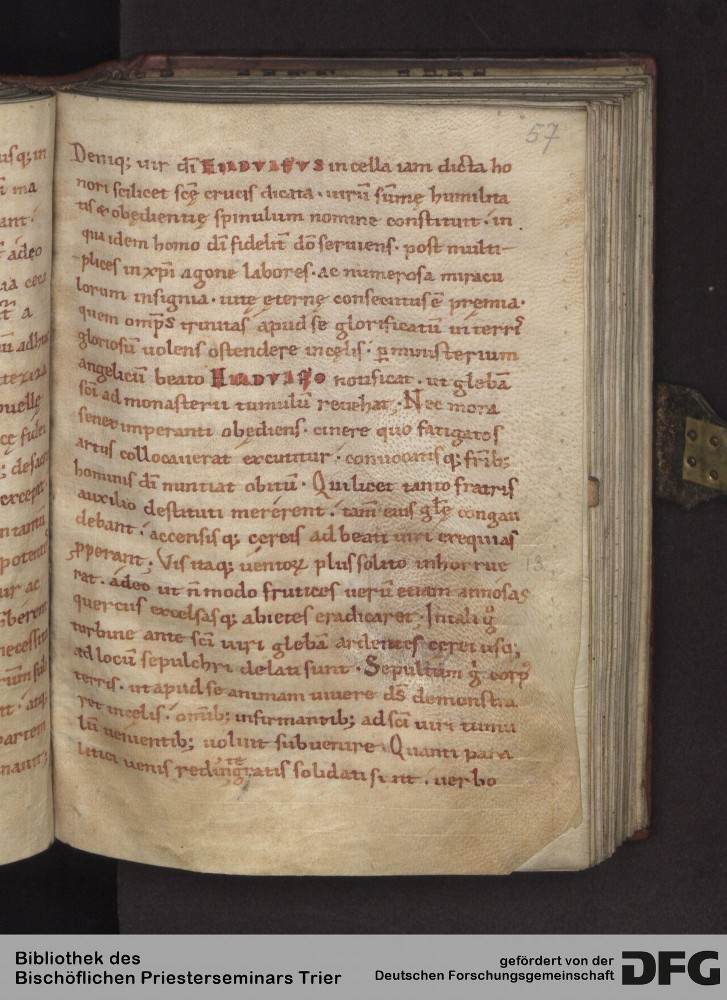 57
Deniq; uir dī HILDVLFVS in cella iam dicta ho
nori scilicet scę crucis dicata · uirū sūmę humilita
tis & obędientię spinulum nomine constituit · in
qua idem homo dī fidelit̄ dō seruiens · post multi-
plices in xp̄i agone labores · ac numerosa miracu
lorum insignia · uitę ęternę consecutus ē premia ·
quem omp̄s trinitas apud se glorificatū in terris
gloriosū uolens ostendere in cęlis · p̱ ministerium
angelicū beato HILDVLFO notificat · ut glebā
sc̄i ad monasterii tumulū reuehat · Nec mora
senex imperanti obędiens · cinere quo fatigatos
artus collocauerat excutitur · conuocatisq; fr̄ib;
hominis dī nuntiat obitū · Qui licet tanto fratris
auxilio destituti mererent · tam̄ eius glę̄ congau
debant · accensisq; cereis ad beati uiri exequias
ꝓperant · Vis itaq; uentoꝝ plus solito inhorrue
rat · adeo ut n̄ modo frutices uerū etiam annosas
quercus excelsasq; abietes eradicaret · In tali g̊
turbine ante sc̄i uiri glebā ardentes cerei usq;
ad locū sepulchri delati sunt · Sepultum g̊ corp᾿
terris · ut apud se animam uiuere ds̄ demonstra
ret in cęlis · omīb; infirmantib; ad sc̄i uiri tumu
lū uenientib; uoluit subuenire · Quanti para
litici uenis redintegratis solidati sint · uerbo
13
Bibliothek des
Bischöflichen Priesterseminars Trier
gefördert von der
Deutschen Forschungsgemeinschaft
DFG